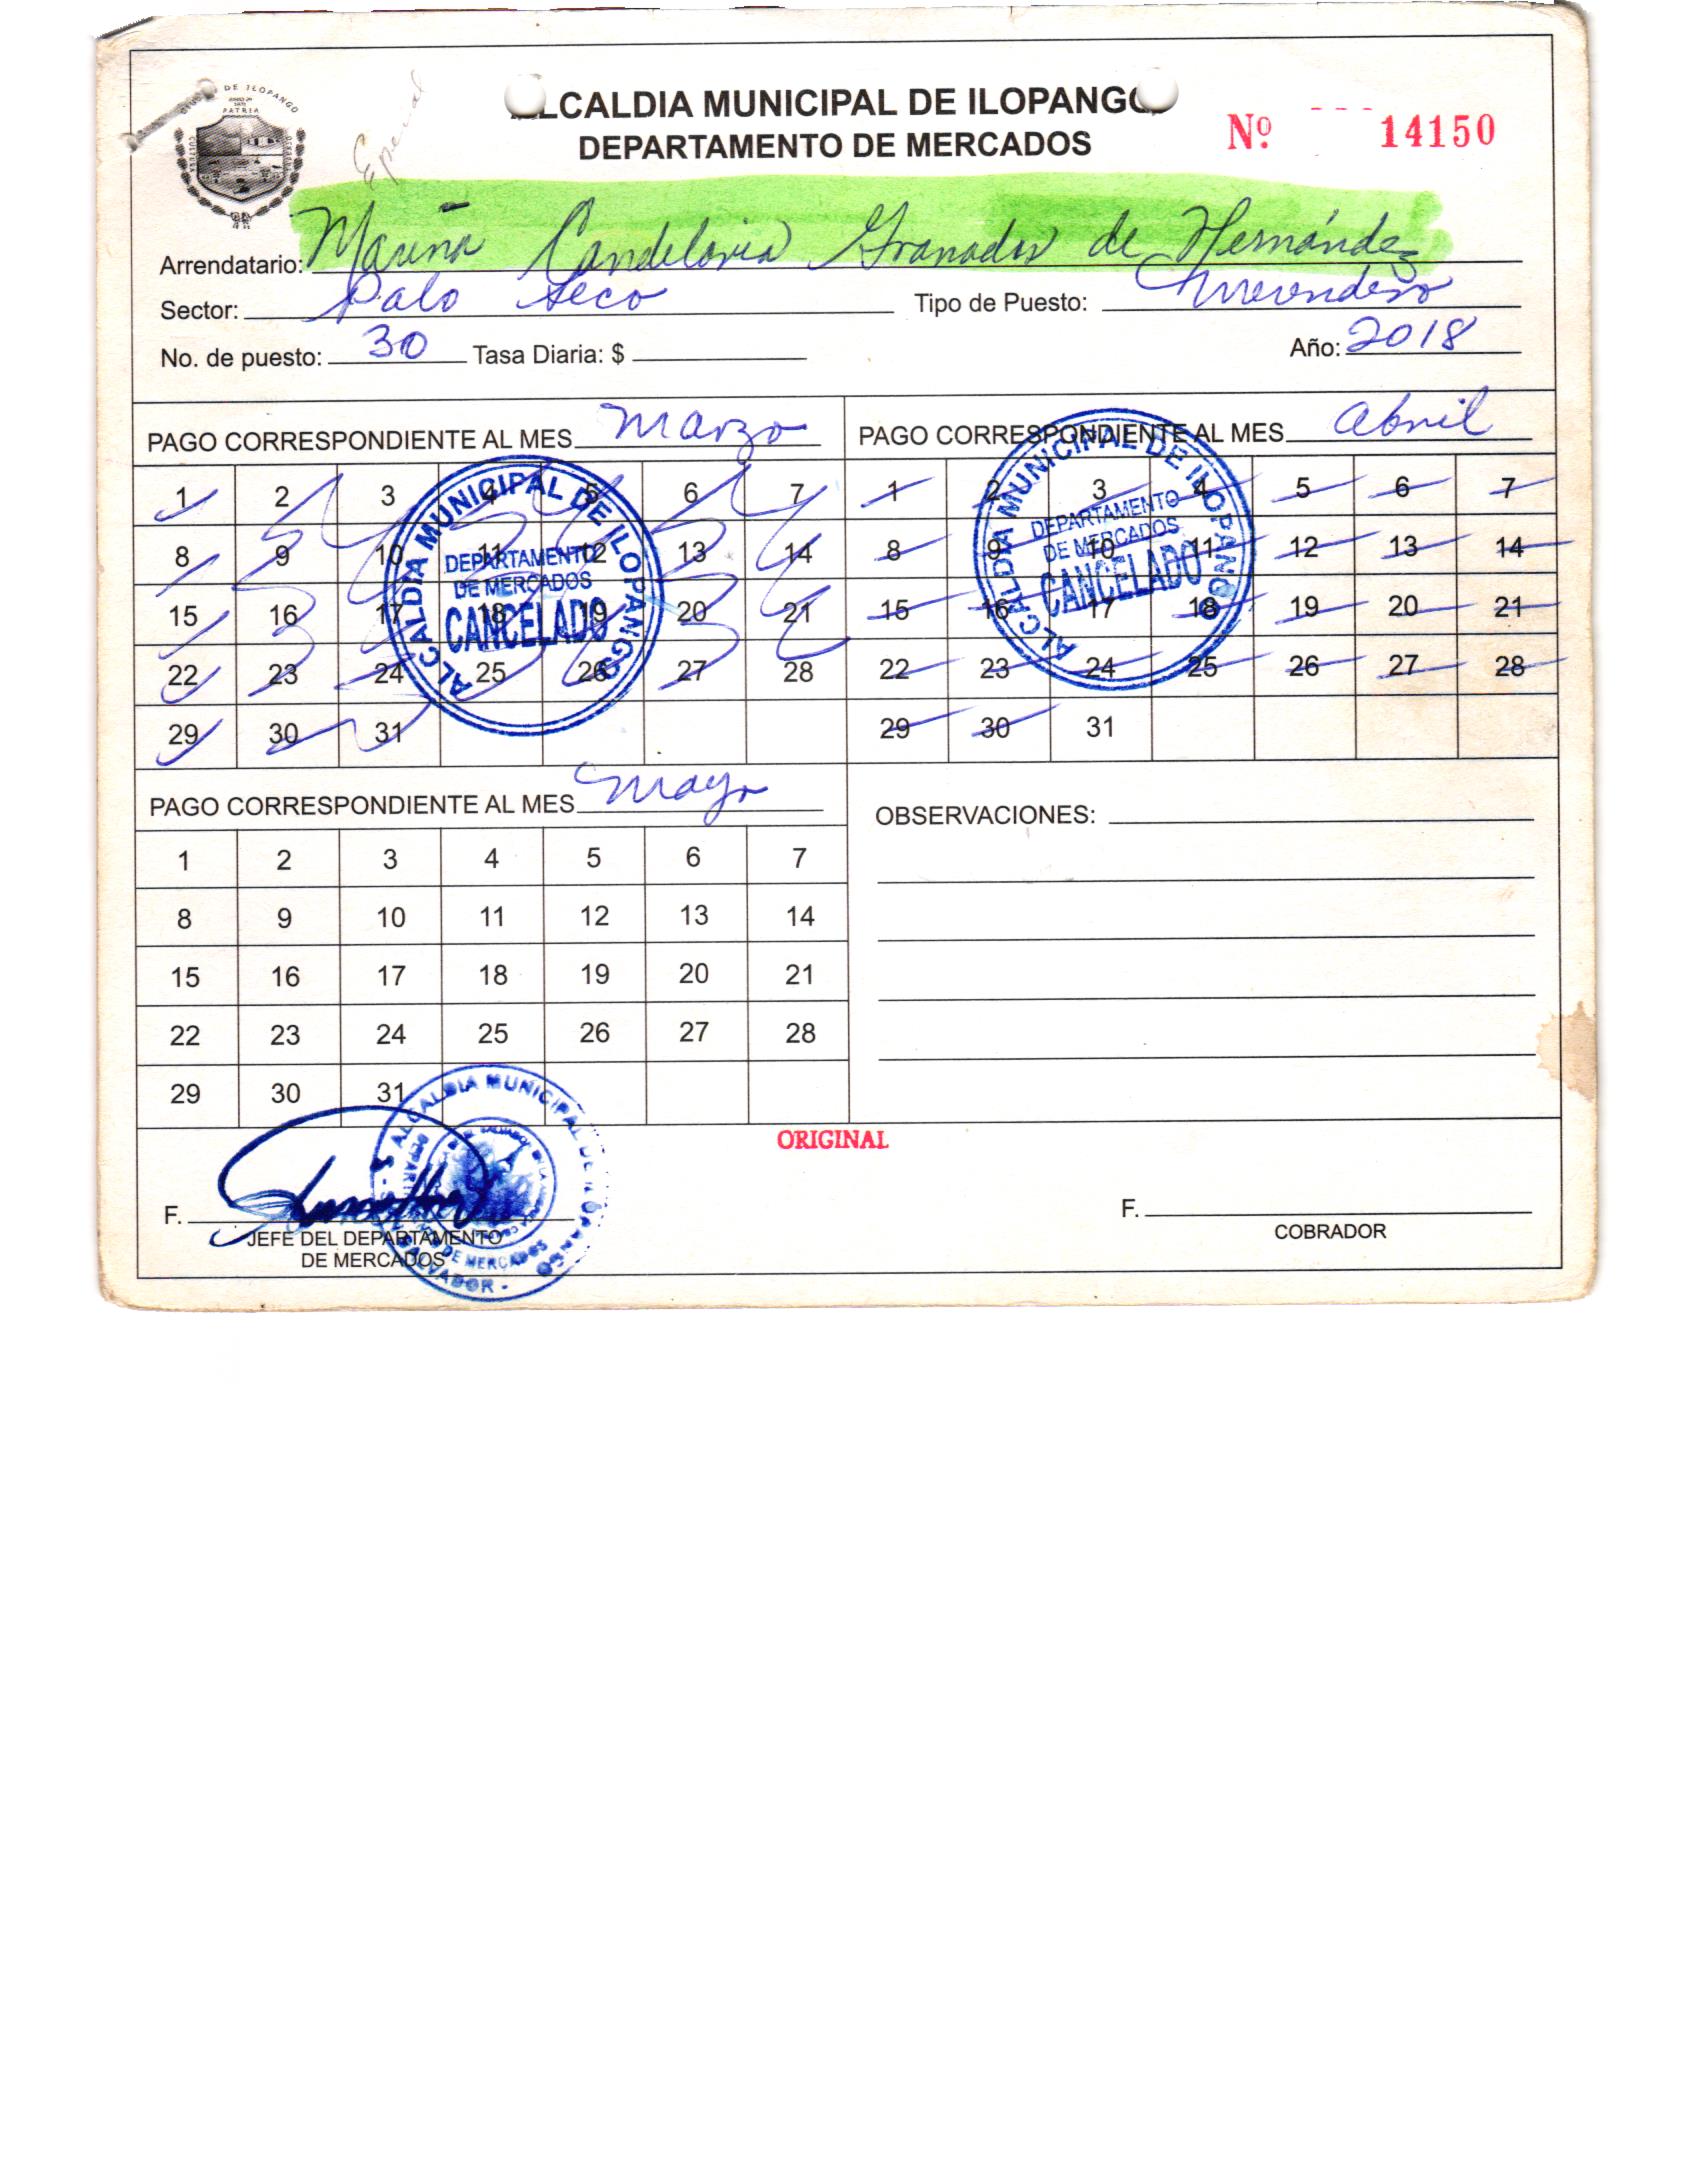 ALCALDIA MUNICIPAL DE ILOPANGO
DEPARTAMENTO DE MERCADOS
Nº 14150
Arrendatario: Marina Candelaria Granados de Hernández
Sector: Palo Seco Tipo de Puesto: Merendero
No. de puesto: 30 Tasa Diaria: $ Año: 2018
PAGO CORRESPONDIENTE AL MES Marzo
1 2 3 4 5 6 7
8 9 10 11 12 13 14
15 16 17 18 19 20 21
22 23 24 25 26 27 28
29 30 31
ALCALDIA MUNICIPAL DE ILOPANGO
DEPARTAMENTO
DE MERCADOS
CANCELADO
PAGO CORRESPONDIENTE AL MES abril
1 2 3 4 5 6 7
8 9 10 11 12 13 14
15 16 17 18 19 20 21
22 23 24 25 26 27 28
29 30 31
ALCALDIA MUNICIPAL DE ILOPANGO
DEPARTAMENTO
DE MERCADOS
CANCELADO
PAGO CORRESPONDIENTE AL MES mayo
1 2 3 4 5 6 7
8 9 10 11 12 13 14
15 16 17 18 19 20 21
22 23 24 25 26 27 28
29 30 31
OBSERVACIONES:
ORIGINAL
F.
JEFE DEL DEPARTAMENTO
DE MERCADOS
ALCALDIA MUNICIPAL DE ILOPANGO
DE MERCADOS
SALVADOR
F.
COBRADOR